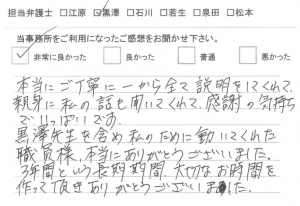 担当弁護士 □江原 ☑黒澤 □石川 □若生 □泉田 □松本
当事務所をご利用になったご感想をお聞かせ下さい。
☑非常に良かった □良かった □普通 □悪かった
本当にご丁寧に一から全て説明をしてくれて、
親身に私の話も聞いてくれて、感謝の気持ち
でいっぱいです。
黒澤先生を含め私のために動いてくれた
職員様、本当にありがとうございました。
3年間という長期期間、大切なお時間を
作って頂きありがとうございました。